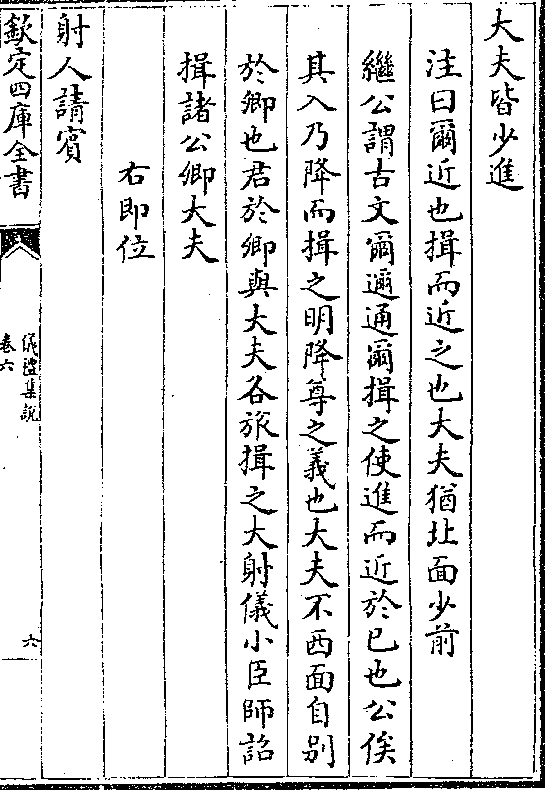 大夫皆少進
注曰爾近也揖而近之也大夫猶北面少前
繼公謂古文爾邇通爾揖之使進而近於已也公俟
其入乃降而揖之明降尊之義也大夫不西面自别
於卿也君於卿與大夫各旅揖之大射儀小臣師詔
揖諸公卿大夫
右即位
射人請賓
欽定四庫全書
儀禮集説
卷六
六